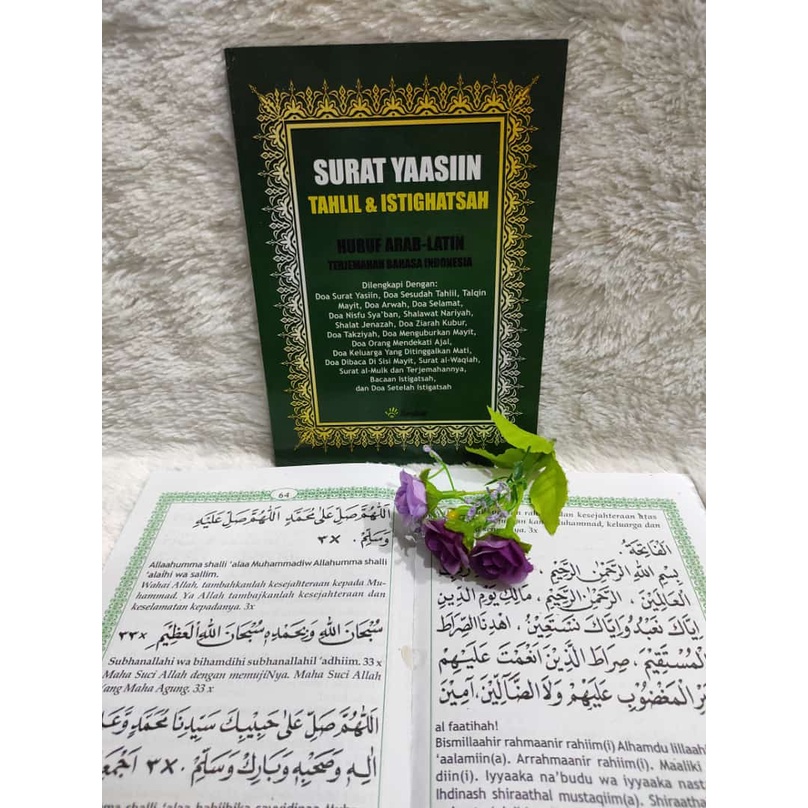 SURAT YAASIIN
TAHLIL & ISTIGHATSAH
HURUF ARAB-LATIN
TERJEMAHAN BAHASA INDONESIA
Dilengkapi Dengan:
Doa Surat Yasiin, Doa Sesudah Tahlil, Talqin
Mayit, Doa Arwah, Doa Selamat,
Doa Nisfu Sya'ban, Shalawat Nariyah,
Shalat Jenazah, Doa Ziarah Kubur,
Doa Takziyah, Doa Menguburkan Mayit,
Doa Orang Mendekati Ajal,
Doa Keluarga Yang Ditinggalkan Mati,
Doa Dibaca Di Sisi Mayit, Surat al-Waqiah,
Surat al-Mulk dan Terjemahannya,
Bacaan Istigatsah,
dan Doa Setelah Istigatsah
64
اَللّٰهُمَّ صَلِّ عَلٰى مُحَمَّدٍ اَللّٰهُمَّ صَلِّ عَلَيْهِ
وَسَلِّمْ . ٣X
Allaahumma shalli 'alaa Muhammadiw Allahumma shalli
'alaihi wa sallim.
Wahai Allah, tambahkanlah kesejahteraan kepada Mu-
hammad. Ya Allah tambajkanlah kesejahteraan dan
keselamatan kepadanya. 3x
سُبْحَانَ اللهِ وَبِحَمْدِهِ سُبْحَانَ اللهِ الْعَظِيْمِ . ٣٣X
Subhanallahi wa bihamdihi subhanallahil 'adhiim. 33 x
Maha Suci Allah dengan memujiNya. Maha Suci Allah
Yang Maha Agung. 33 x
اَللّٰهُمَّ صَلِّ عَلٰى حَبِيْبِكَ سَيِّدِنَا مُحَمَّدٍ وَّعَلٰى
اٰلِهِ وَصَحْبِهِ وَبَارِكْ وَسَلِّمْ . ٣X اَجْمَعِ
shalli 'alaa habiibika sayyidinaa
rahan dan kesejahteraan atas
kami Muhammad, keluarga dan
3x
اَلْفَاتِحَةُ
بِسْمِ اللهِ الرَّحْمٰنِ الرَّحِيْمِ
الْعَالَمِيْنَ ، الرَّحْمٰنِ الرَّحِيْمِ ، مَالِكِ يَوْمِ الدِّيْنِ
اِيَّاكَ نَعْبُدُ وَاِيَّاكَ نَسْتَعِيْنُ ، اِهْدِنَا الصِّرَاطَ
الْمُسْتَقِيْمَ ، صِرَاطَ الَّذِيْنَ اَنْعَمْتَ عَلَيْهِمْ
غَيْرِ الْمَغْضُوْبِ عَلَيْهِمْ وَلَا الضَّالِّيْنَ ، آمِيْنَ
al faatihah!
Bismillaahir rahmaanir rahiim(i) Alhamdu lillaah
'aalamiin(a). Arrahmaanir rahiim(i). Maaliki
diin(i). Iyyaaka na'budu wa iyyaaka nast
Ihdinash shiraathal mustaqiim(a). Shiraatha